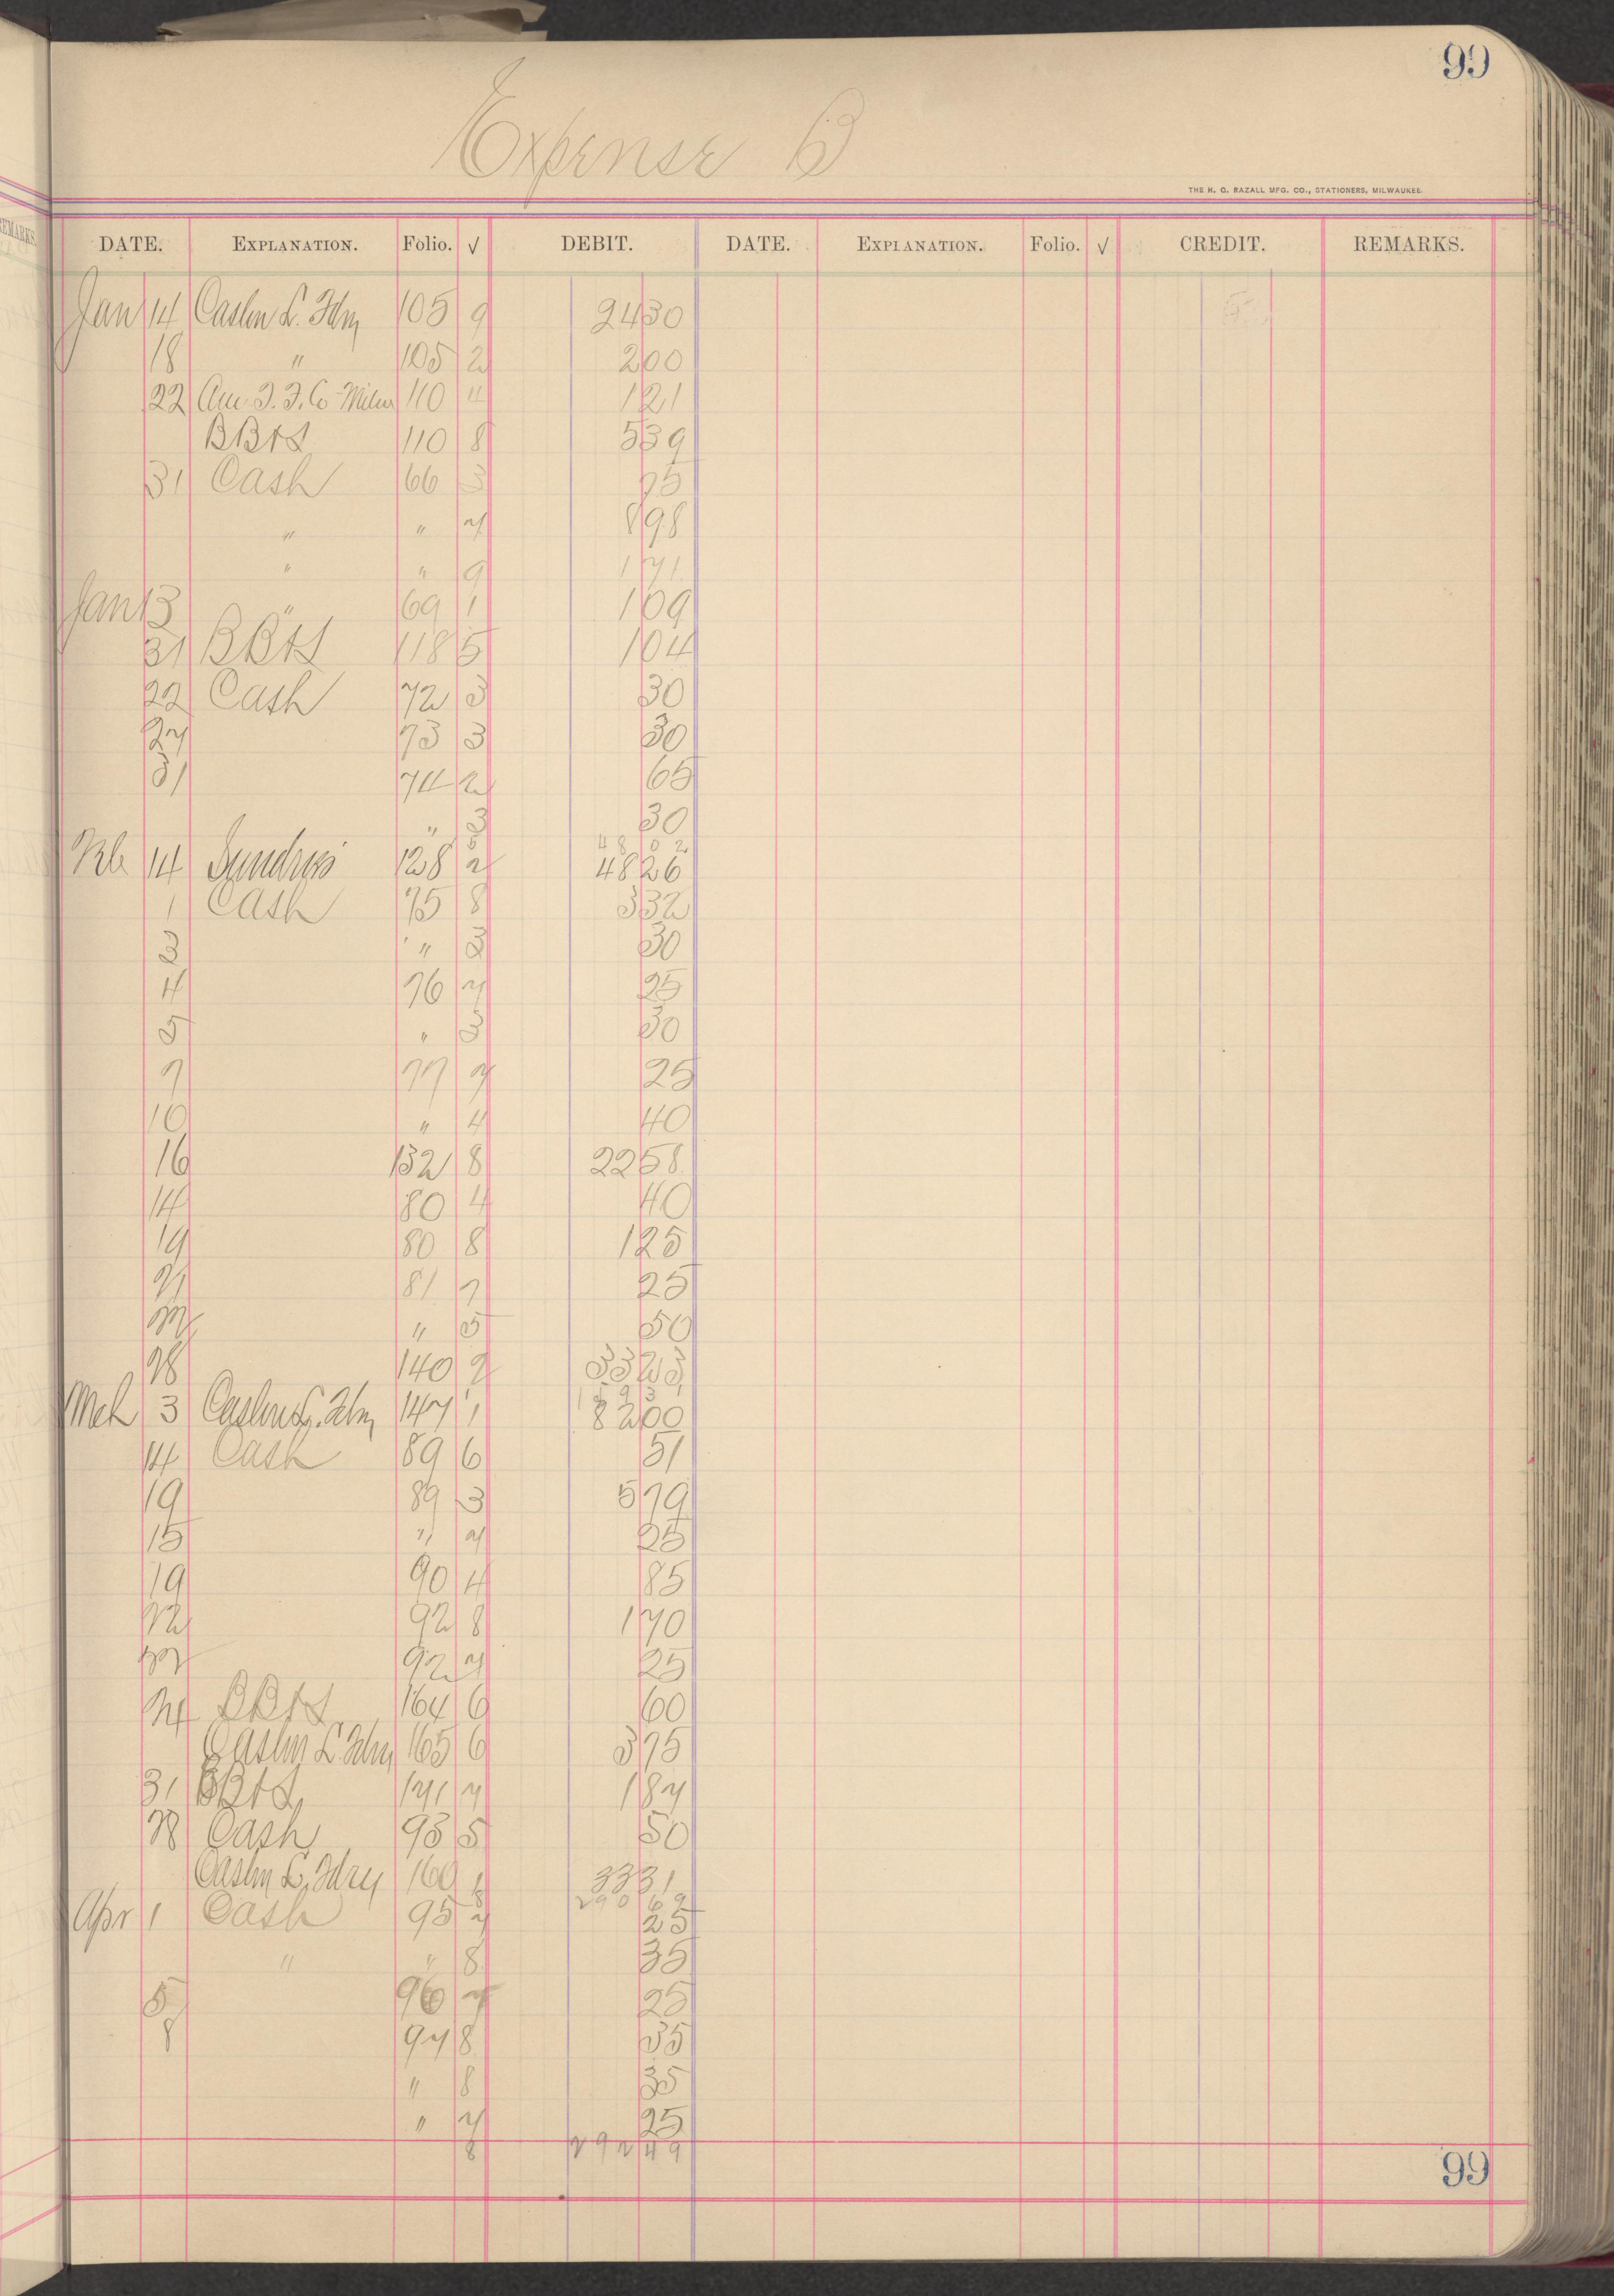 99
Expense B
THE H. G. RAZALL MFG. CO., STATIONERS, MILWAUKEE.
REMARKS.
DATE. EXPLANATION. Folio. √ DEBIT. DATE. EXPLANATION. Folio. √ CREDIT. REMARKS.
Jan 14 Caslon L. Fdry 105 9 24 30
18 " 105 2 2 00
22 Am. T. F. Co Milw 110 11 1 21
BB&S 110 8 5 39
31 Cash 66 3 75
" " 7 8 98
" " 9 1 71
Jan 13 " 69 1 1 09
31 BB&S 118 5 1 04
22 Cash 72 3 30
27 73 3 30
31 74 2 65
" 3 30
48 02
Feb 14 Sundries 128 2 48 26
1 Cash 75 8 3 32
3 " 3 30
4 76 7 25
5 " 3 30
7 77 7 25
10 " 4 40
16 132 8 22 58
14 80 4 40
19 80 8 1 25
21 81 7 25
22 " 5 50
28 140 2 33 23
Mch 3 Caslon L. Fdry 147 1 82 00
14 Cash 89 6 51
19 89 3 5 79
15 " 7 25
19 90 4 85
22 92 8 1 70
22 92 7 25
24 BB&S 164 6 60
Caslon L. Fdry 165 6 3 75
31 BB&S 171 7 1 87
28 Cash 93 5 50
Caslon L. Fdry 160 1 33 31
290 69
Apr 1 Cash 95 7 25
" " 8 35
5 96 7 25
8 97 8 35
" 8 35
" 7 25
8 292 49
99